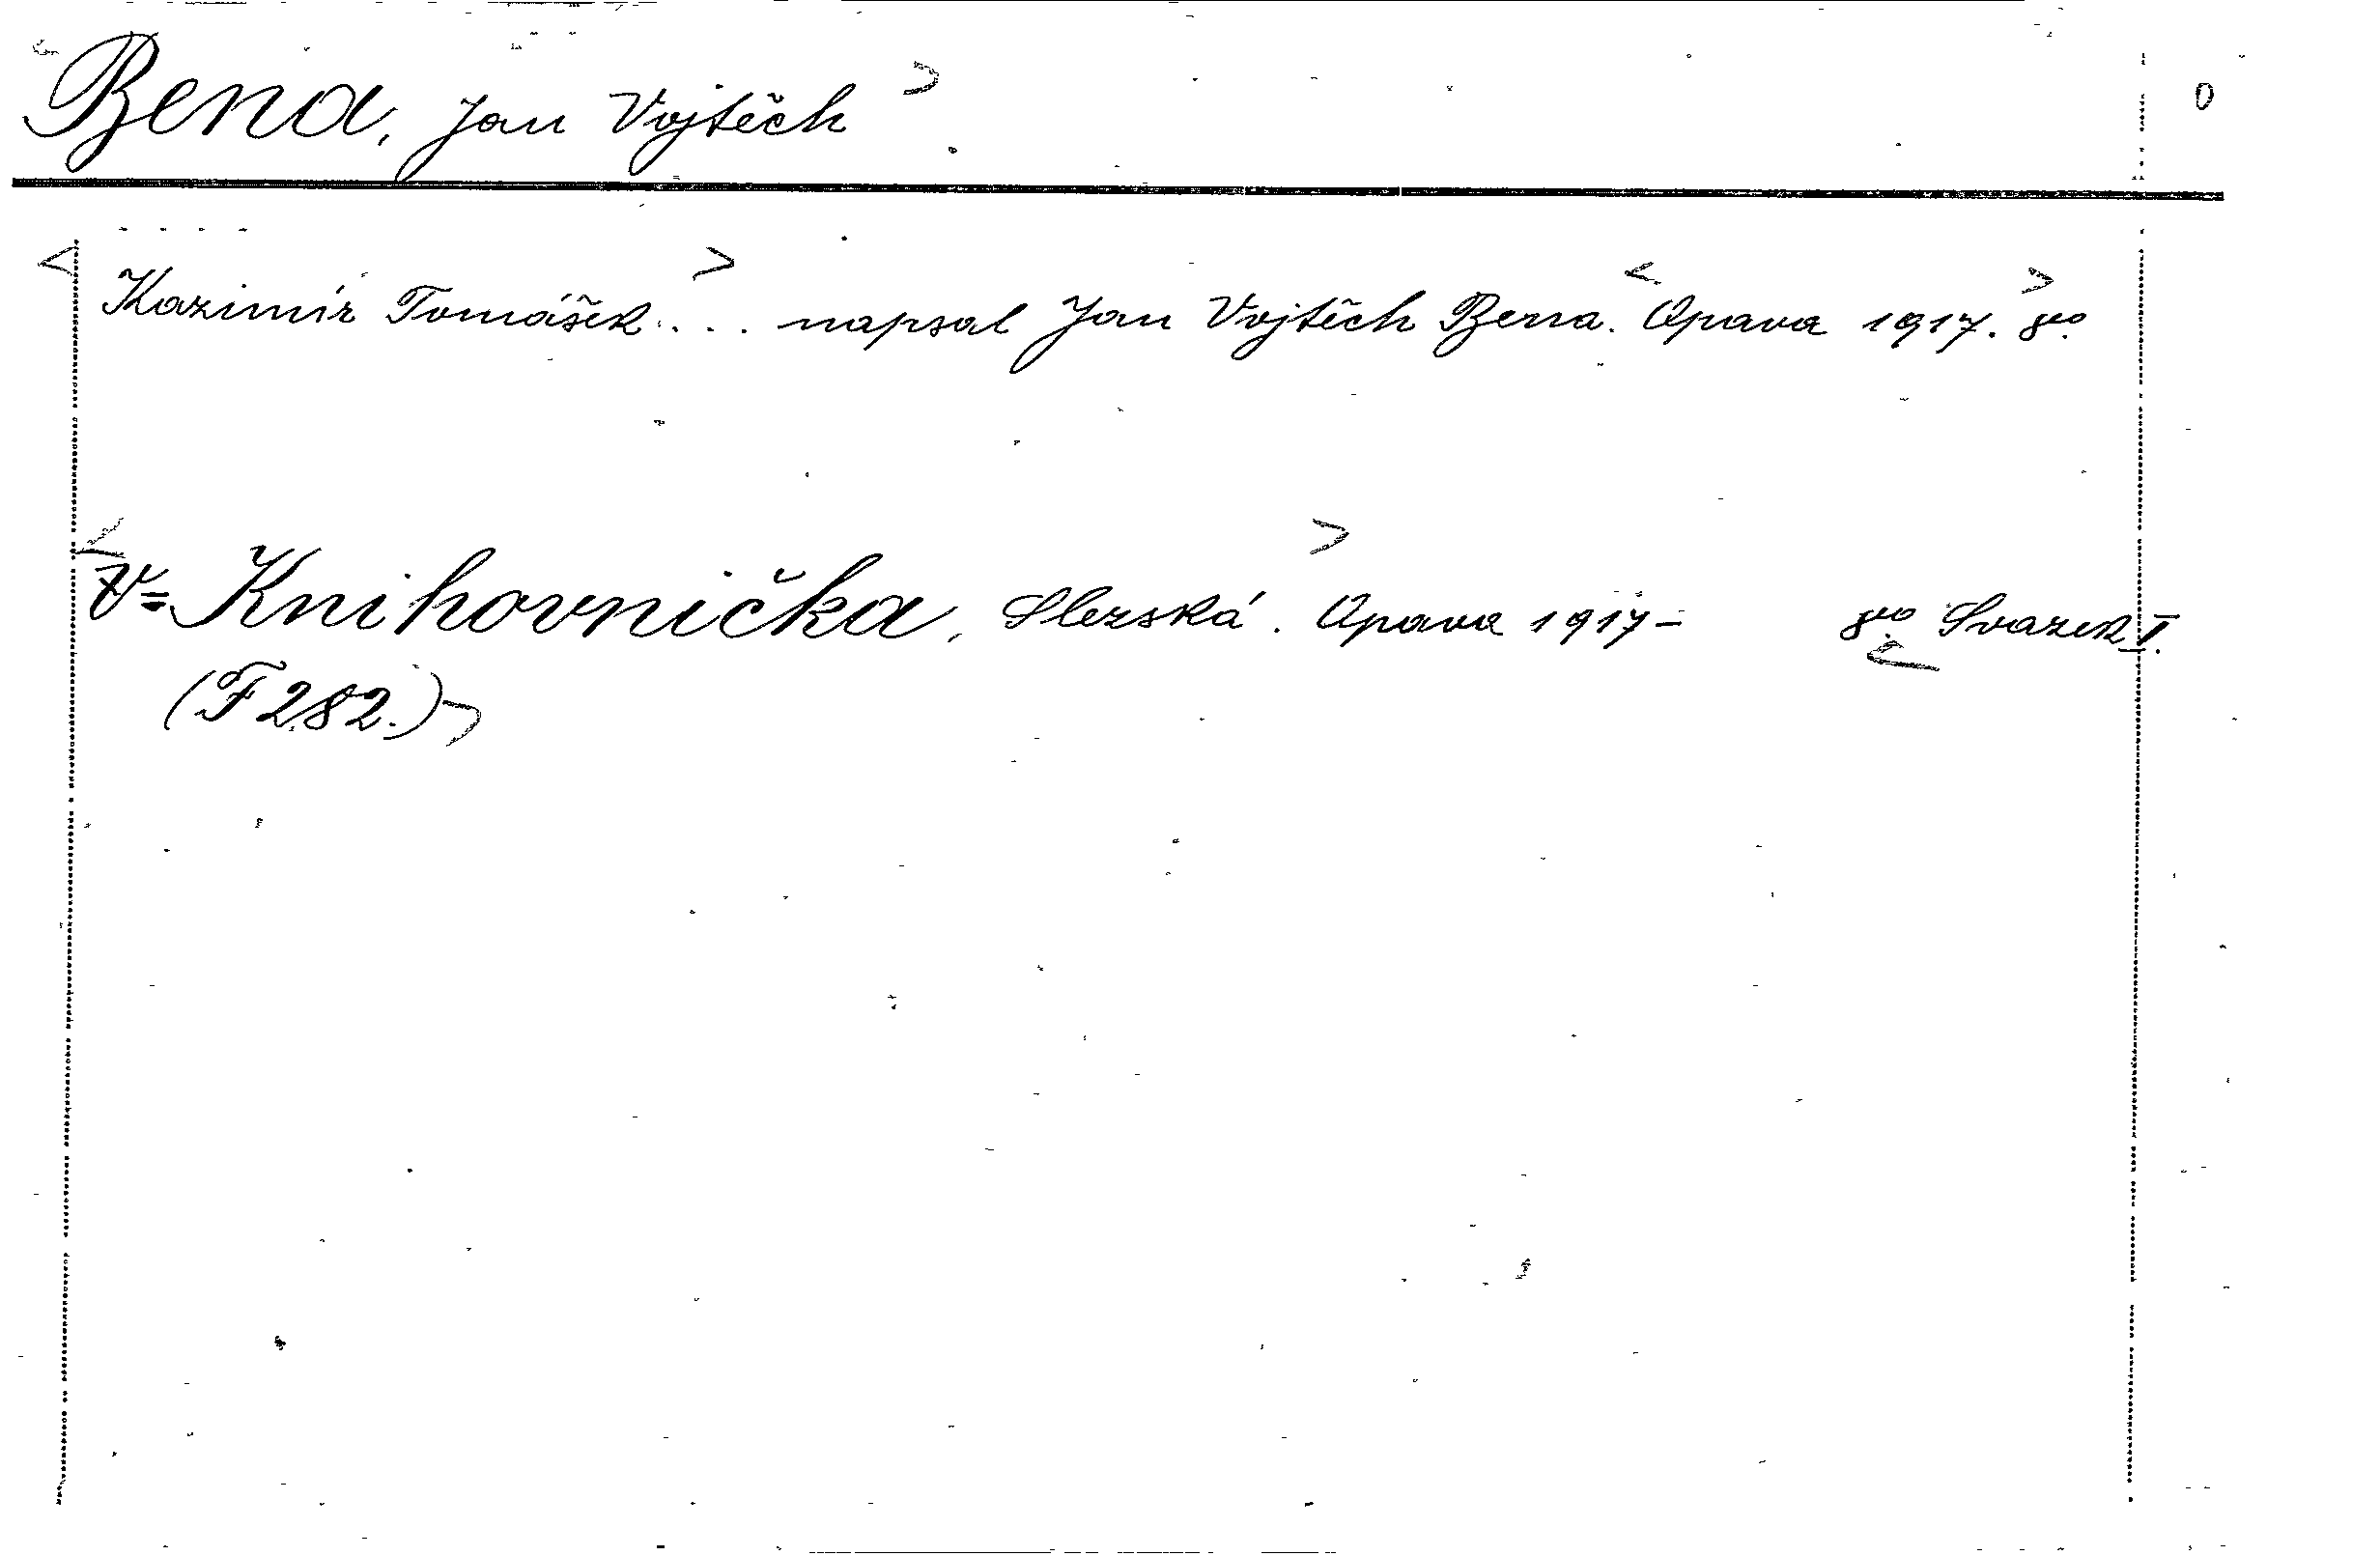 Bena, Jan Vojtěch 0
Kazimír Tomášek... napsal Jan Vojtěch Bena. Opava 1917. 8vo.
V= Knihovnička, Slezská. Opava 1917- 8vo. Svazek I.
(F 282.)